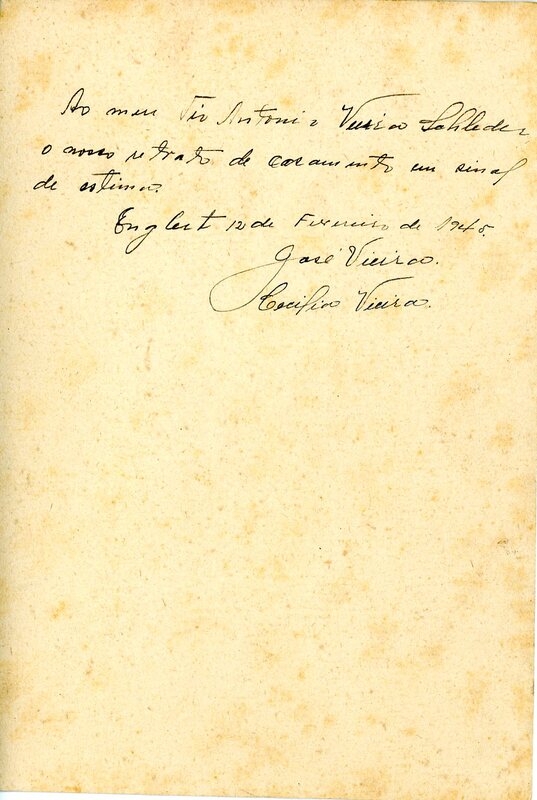 Ao meu Tio Antonio Vieira Schleder
o nosso retrato de casamento em sinal
de estima.
Englert 12 de Fevereiro de 1945.
José Vieira.
Cecilia Vieira.